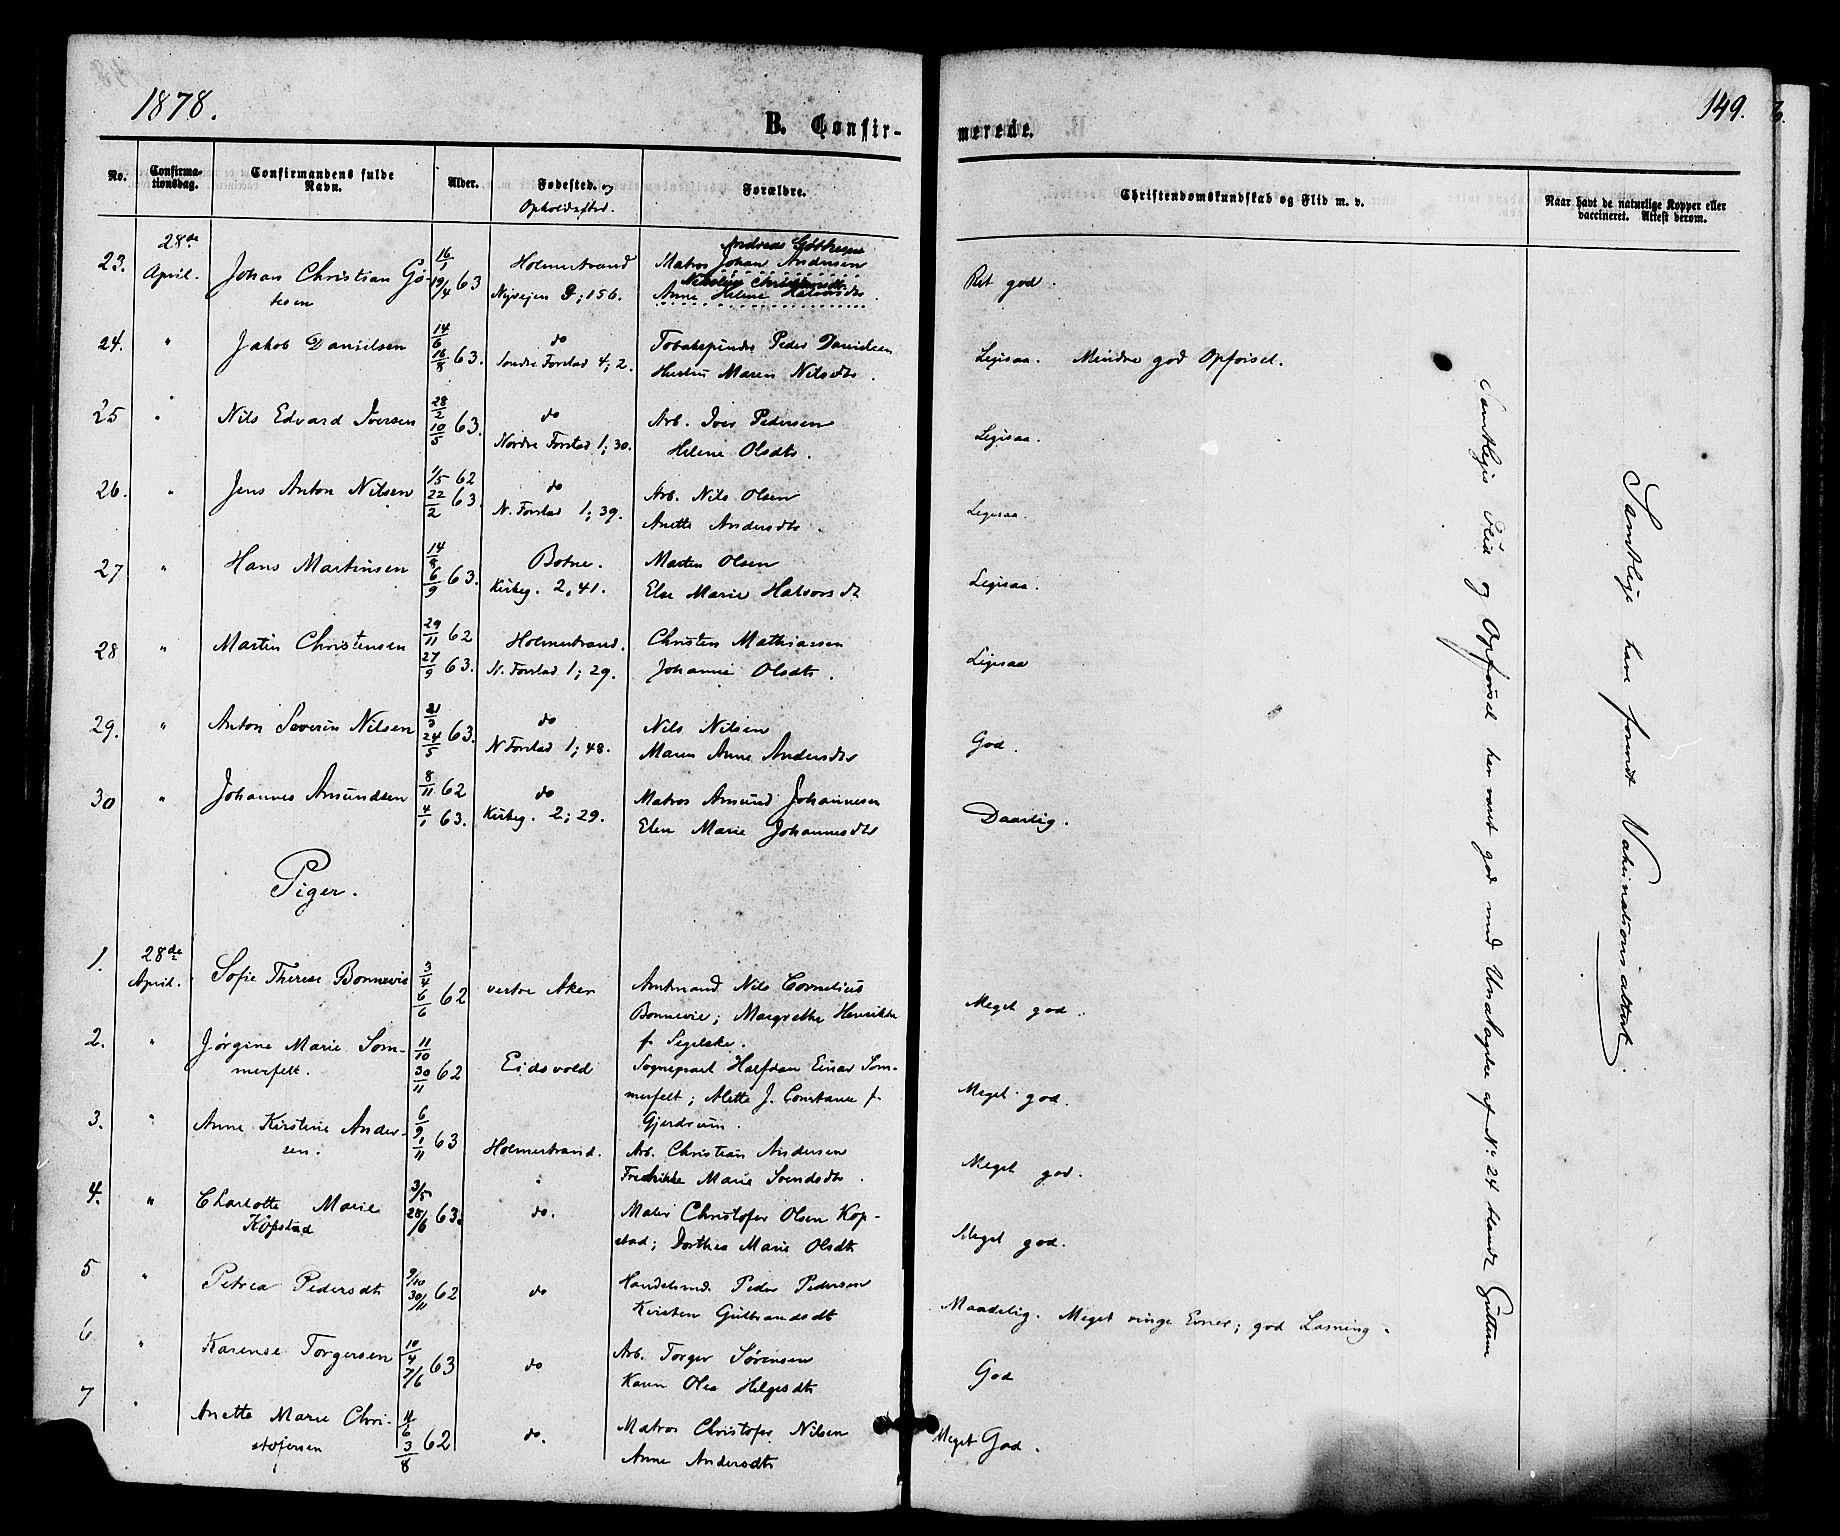 1878.
149.
B. Confir-
merede.
No.
Confirma-
tionsdag.
Confirmandens fulde
Navn.
Alder.
Fødested. og
Opholdssted.
Forældre.
Christendomskundskab og Flid m. v.
Naar havt de naturlige Kopper eller
vaccineret. Attest derom.
23. 28de April. Johan Christian Gö-
tesen
16/1 19/4 63
Holmestrand
Nyvejen 156.
Matros Johan Andersen
Anne Helene
Ret god.
24. " Jakob Danielsen
14/6 16/8 63.
do
Søndre Forstad 4; 2.
Tobakspinder Peder Danielsen
Hustru Maren Nilsdtr.
Legisaa. Mindre god Opførsel.
25 " Nils Edvard Iversen
28/2 10/5 63.
do
Nordre Forstad 1; 30.
Arb. Iver Pedersen
Helene Olsdtr.
Legisaa.
26. " Jens Anton Nilsen
1/5 62
22/2 63.
do
N. Forstad 1; 39.
Arb. Nils Olsen
Anette Andersdtr.
Legisaa.
27 " Hans Martinsen
6/9 63.
Botne.
Kirkeg. 2, 41.
Martin Olsen
Else Marie Halvorsdtr
Legisaa.
28 " Martin Christensen
29/11 62
27/9 63.
Holmestrand.
N. Forstad 1; 29.
Christen Mathiassen
Johanne Olsdtr.
Ligesaa
29. " Anton Severin Nilsen
21/3 24/5 63.
do
N Forstad 1; 48.
Nils Nilsen
Maren Anne Andersdtr
God.
30 " Johannes Amundsen
8/11 62
4/1 63.
do
Kirkeg. 2; 29.
Matros Amund Johannesen
Elen Marie Johannesdtr
Daarlig.
Piger.
1. 28de April. Sofie Therese Bonnevie
3/4 6/6 62
vestre Aker
Amtmand Nils Cornelius
Bonnevie; Margrethe Henrikke
f. Segelcke.
Meget god.
2. " Jørgine Marie Som-
merfelt.
11/10 30/11 62
Eidsvold
Sogneprest Halfdan Einar Som-
merfelt; Alette J. Constance f.
Gjerdrum.
Meget god.
3. " Anne Kirstine Ander-
sen.
6/9 1/11 63
Holmestrand.
Arb. Christian Andersen
Fredrikke Marie Svendsdtr.
Meget god.
4. " Charlotte Marie
Kopstad
3/5 25/6 63.
do.
Maler Christofer Olsen Kop-
stad; Dorthea Marie Olsdtr
Meget god.
5 " Petrea Pedersdtr
9/10 30/11 62
do
Handelsmd. Peder Pedersen
Kirsten Gulbrandsdtr
Maadelig. Meget ringe Evner; god Læsning.
6 " Karense Torgersen
10/4 7/6 63
do
Arb. Torger Sørensen
Karen Olea Helgesdtr
God
7 " Anette Marie Chri-
stofersen
11/6 3/8 62
do.
Matros Christofer Nilsen
Anne Andersdtr
Meget God.
Samtliges Flid og Opførsel har været god med Undtagelse af No 24 blandt Guttene
Samtlige have forevist Vakcinationsattest.